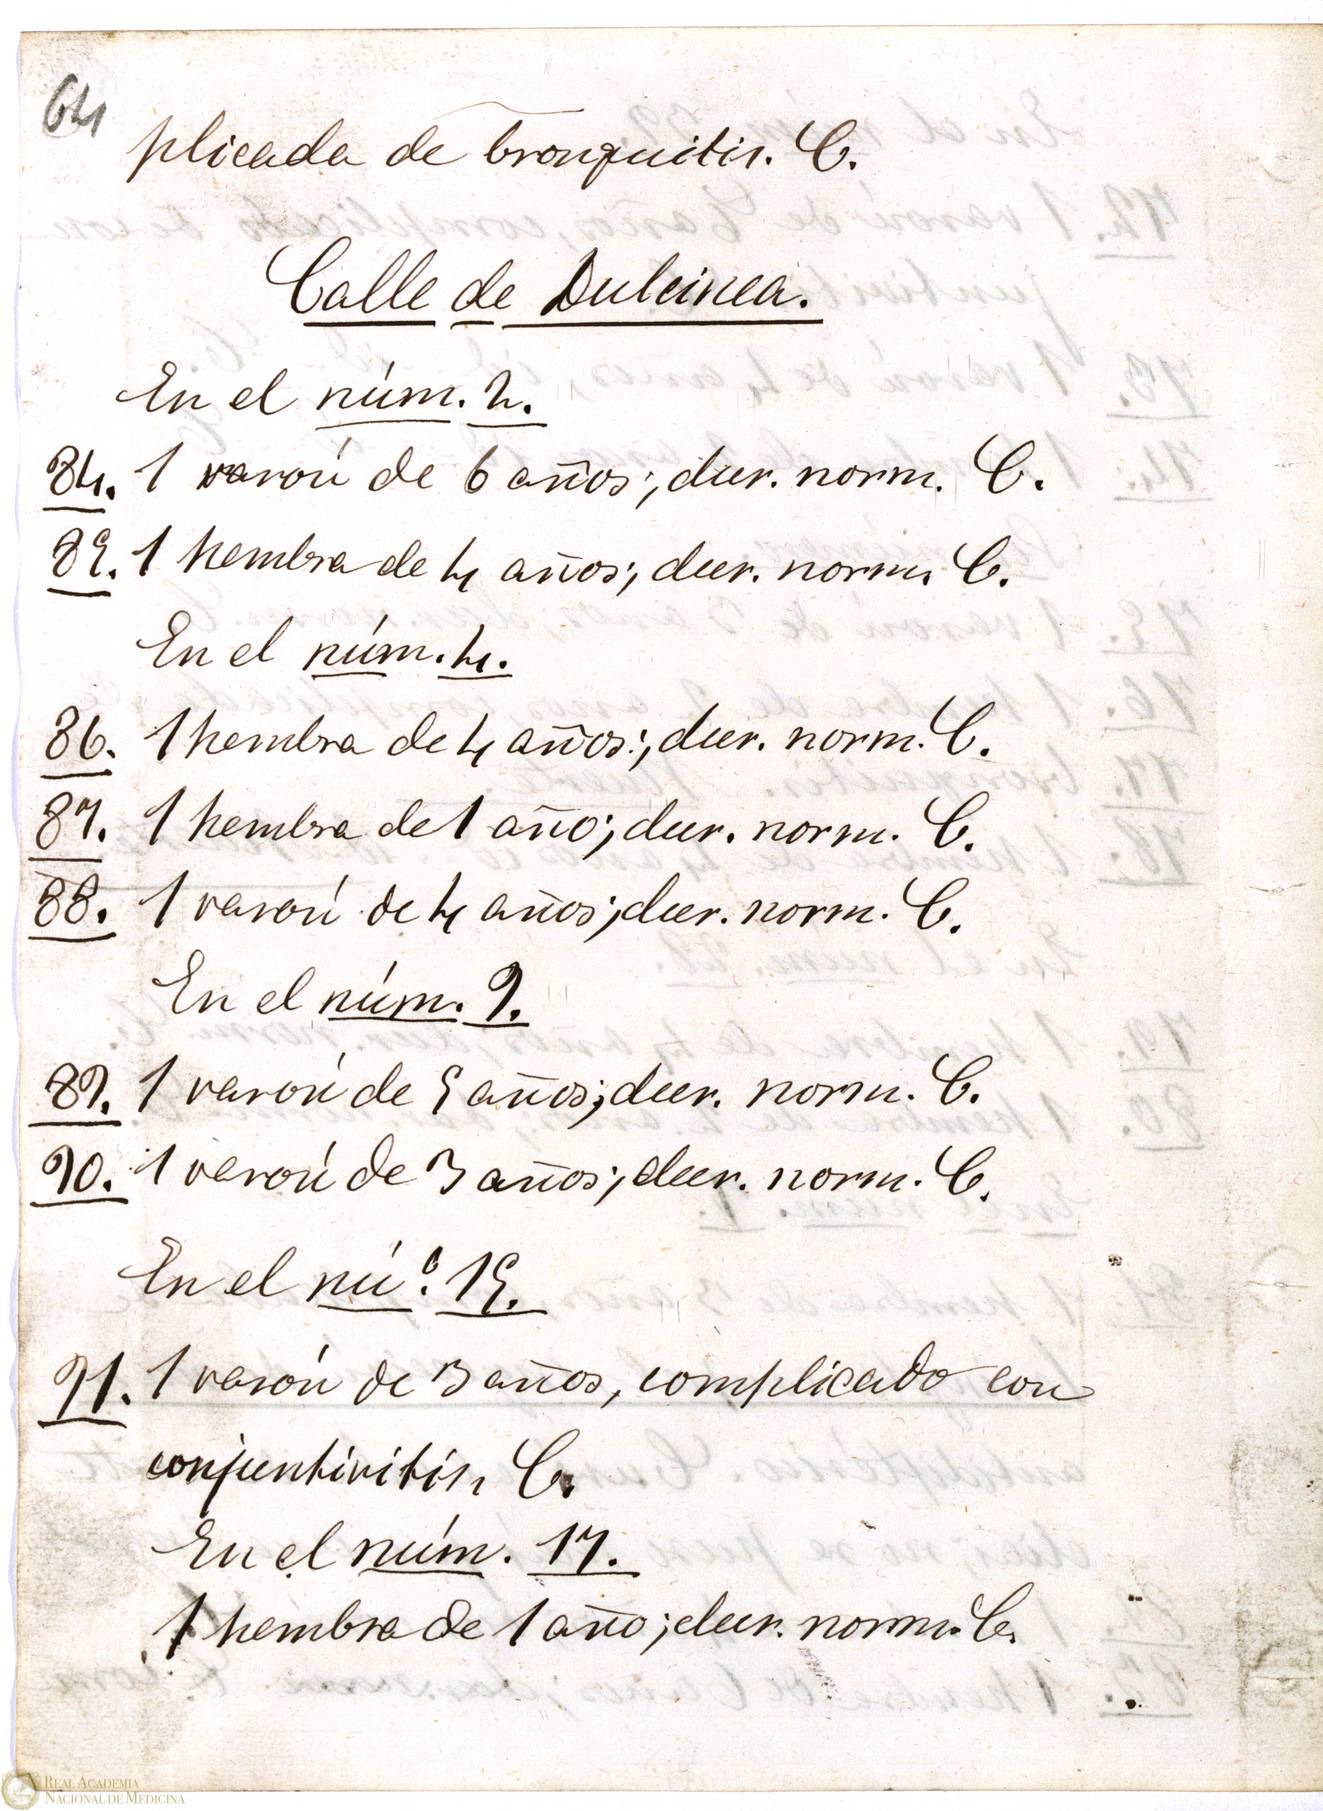 64
plicada de bronquitis. C.
Calle de Dulcinea.
En el núm. 2.
84. 1 varón de 6 años; dur. norm. C.
85. 1 hembra de 4 años; dur. norm. C.
En el núm. 4.
86. 1 hembra de 4 años; dur. norm. C.
87. 1 hembra de 1 año; dur. norm. C.
88. 1 varón de 4 años; dur. norm. C.
En el núm. 9.
89. 1 varón de 5 años; dur. norm. C.
90. 1 varón de 3 años; dur. norm. C.
En el nú.º 15.
91. 1 varón de 3 años, complicado con
conjuntivitis, C.
En el núm. 17.
1 hembra de 1 año; dur. norm. C.
REAL ACADEMIA
NACIONAL DE MEDICINA